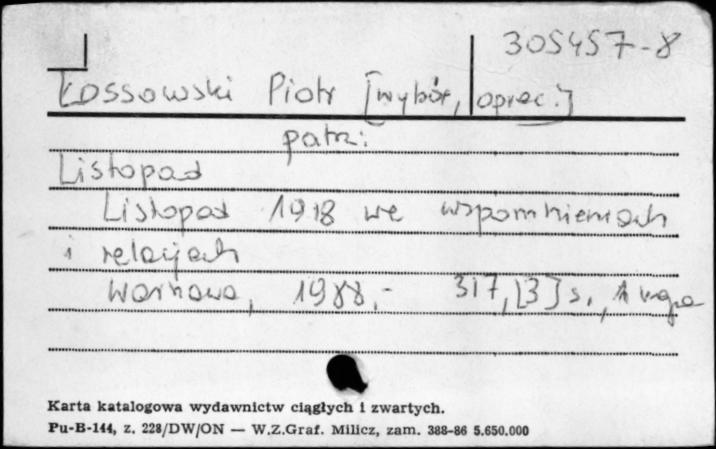 305457-8
Łossowski Piotr [wybór, oprac.]
patrz:
Listopad
Listopad 1918 we wspomnieniach
i relacjach
Warszawa, 1988.- 317,[3] s., 1 mapa
Karta katalogowa wydawnictw ciągłych i zwartych.
Pu-B-144, z. 228/DW/ON — W.Z.Graf. Milicz, zam. 388-86 5.650.000